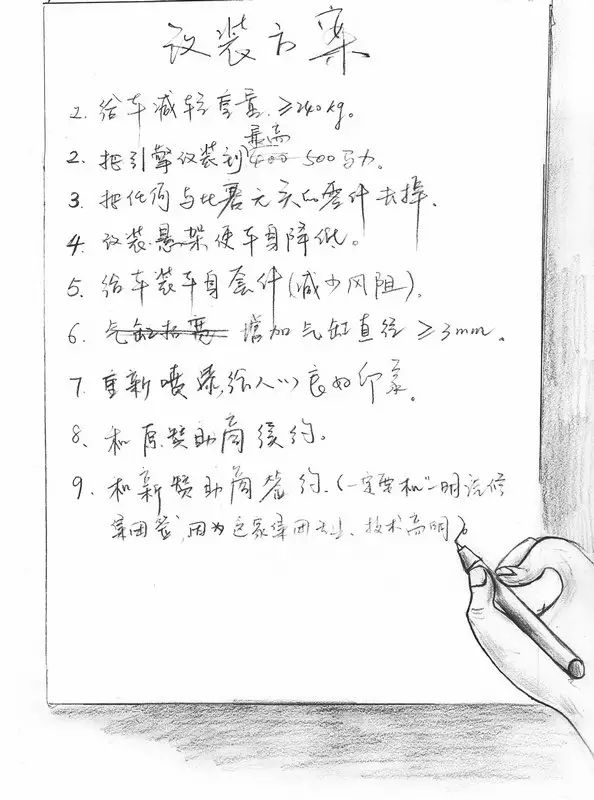 改装方案
2. 给车减轻重量 ≥240kg。
最高
2. 把引擎改装到 400 500马力.
3. 把任何与比赛无关的零件去掉.
4. 改装悬架使车身降低。
5. 给车装车身套件(减少风阻).
6. 气缸拓宽 增加气缸直径 ≥3mm。
7. 重新喷漆,给人以良好印象。
8. 和原赞助商续约。
9. 和新赞助商签约.(一定要和 明汽修
集团签,因为这家集团专业、技术高明)